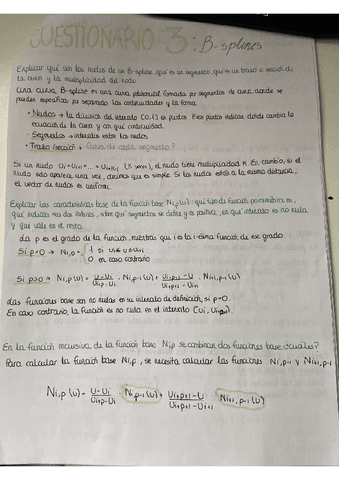 CUESTIONARIO 3: B-splines
Explicar qué son los nodos de un B-spline, qué es un segmento, qué es un trazo o sección de
la curva y la multiplicidad del nodo
Una curva B-spline es una curva polinomial formada por segmentos de curva donde se
pueden especificar por separado las continuidades y la forma.
• Nodos → la división del intervalo [0,1] es puntos. Esos puntos indican dónde cambia la
ecuación de la curva y con qué continuidad.
• Segmentos → intervalos entre los nodos
• Trazo/sección → Curva de cada segmento?
Si un nudo Ui=Ui+1=...=Ui+k-1 (K veces), el nudo tiene multiplicidad K. En cambio, si el
nudo sólo aparece una vez, decimos que es simple. Si los nudos están a la misma distancia,
el vector de nudos es uniforme.
Explicar las características base de la función base Ni,p(u): qué tipo de función polinómica es,
qué indican sus dos índices, sobre qué segmentos se define y es positiva, en qué intervalo es no nula
y qué vale en el resto.
La p es el grado de la función, mientras que i es la i-ésima función de ese grado
Si p=0 → Ni,0 = 1 si ui≤u≤ui+1
0 en caso contrario
Si p>0 → Ni,p(u) = U-Ui / Ui+p-Ui · Ni,p-1(u) + Ui+p+1-U / Ui+p+1-Ui+1 · Ni+1,p-1(u)
Las funciones base son no nulas en su intervalo de definición, si p=0.
En caso contrario, la función es no nula en el intervalo (ui,
En la función recursiva de la función base Ni,p se combinan dos funciones base ¿cuáles?
Para calcular la función base Ni,p, se necesita calcular las funciones Ni,p-1 y Ni+1,p-1
Ni,p(u) = U-Ui / Ui+p-Ui · Ni,p-1(u) + Ui+p+1-U / Ui+p+1-Ui+1 · Ni+1,p-1(u)